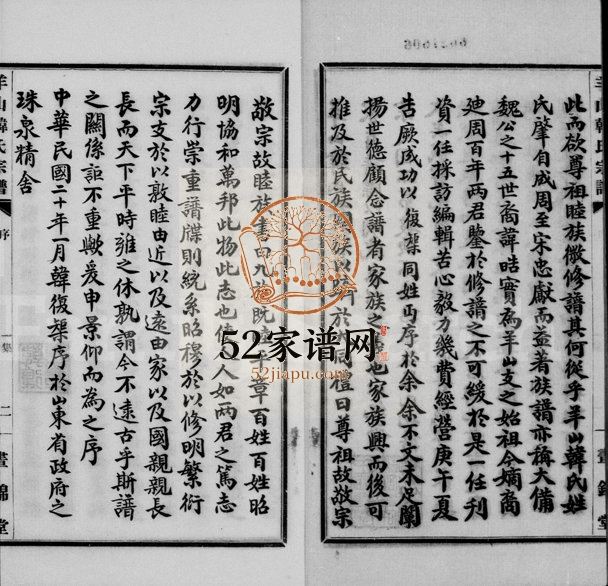 此而欲尊祖睦族微修譜其何從乎羊山韓氏姓
氏肇自成周至宋忠獻而益著族譜亦稱大備
魏公之十五世裔諱晧實為羊山支之始祖今嫡裔
廸周百年兩君鑒於修譜之不可緩於是一任刊
資一任採訪編輯苦心毅力幾費經營庚午夏
告厥成功以復榘同姓丐序於余余不文未足闡
揚世德顧念譜者家族之也家族興而後可
推及於民族以於同禮曰尊祖故敬宗
敬宗故睦族書曰九族既章百姓百姓昭
明協和萬邦此物此志也人如兩君之篤志
力行崇重譜牒則統系昭穆於以修明繁衍
宗支於以敦睦由近以及遠由家以及國親親長
長而天下平時雍之休孰謂今不遠古乎斯譜
之關係詎不重歟爰申景仰而為之序
中華民國二十年一月韓復榘序於山東省政府之
珠泉精舍
羊山韓氏宗譜
序
一集
二
晝錦堂
52家谱网
52jiapu.com